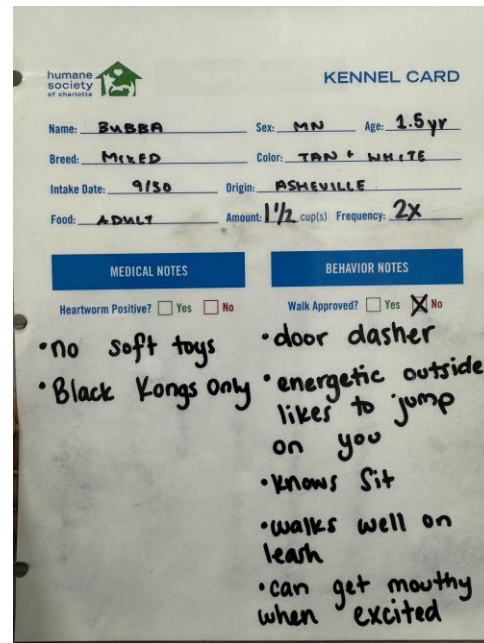 humane
society
of charlotte
KENNEL CARD
Name: BUBBA Sex: MN Age: 1.5 yr
Breed: MIXED Color: TAN + WHITE
Intake Date: 9/30 Origin: ASHEVILLE
Food: ADULT Amount: 1 1/2 cup(s) Frequency: 2X
MEDICAL NOTES
Heartworm Positive? Yes No
• no soft toys
• Black Kongs Only
BEHAVIOR NOTES
Walk Approved? Yes No
• door dasher
• energetic outside
likes to jump
on you
• knows Sit
• walks well on
leash
• can get mouthy
when excited